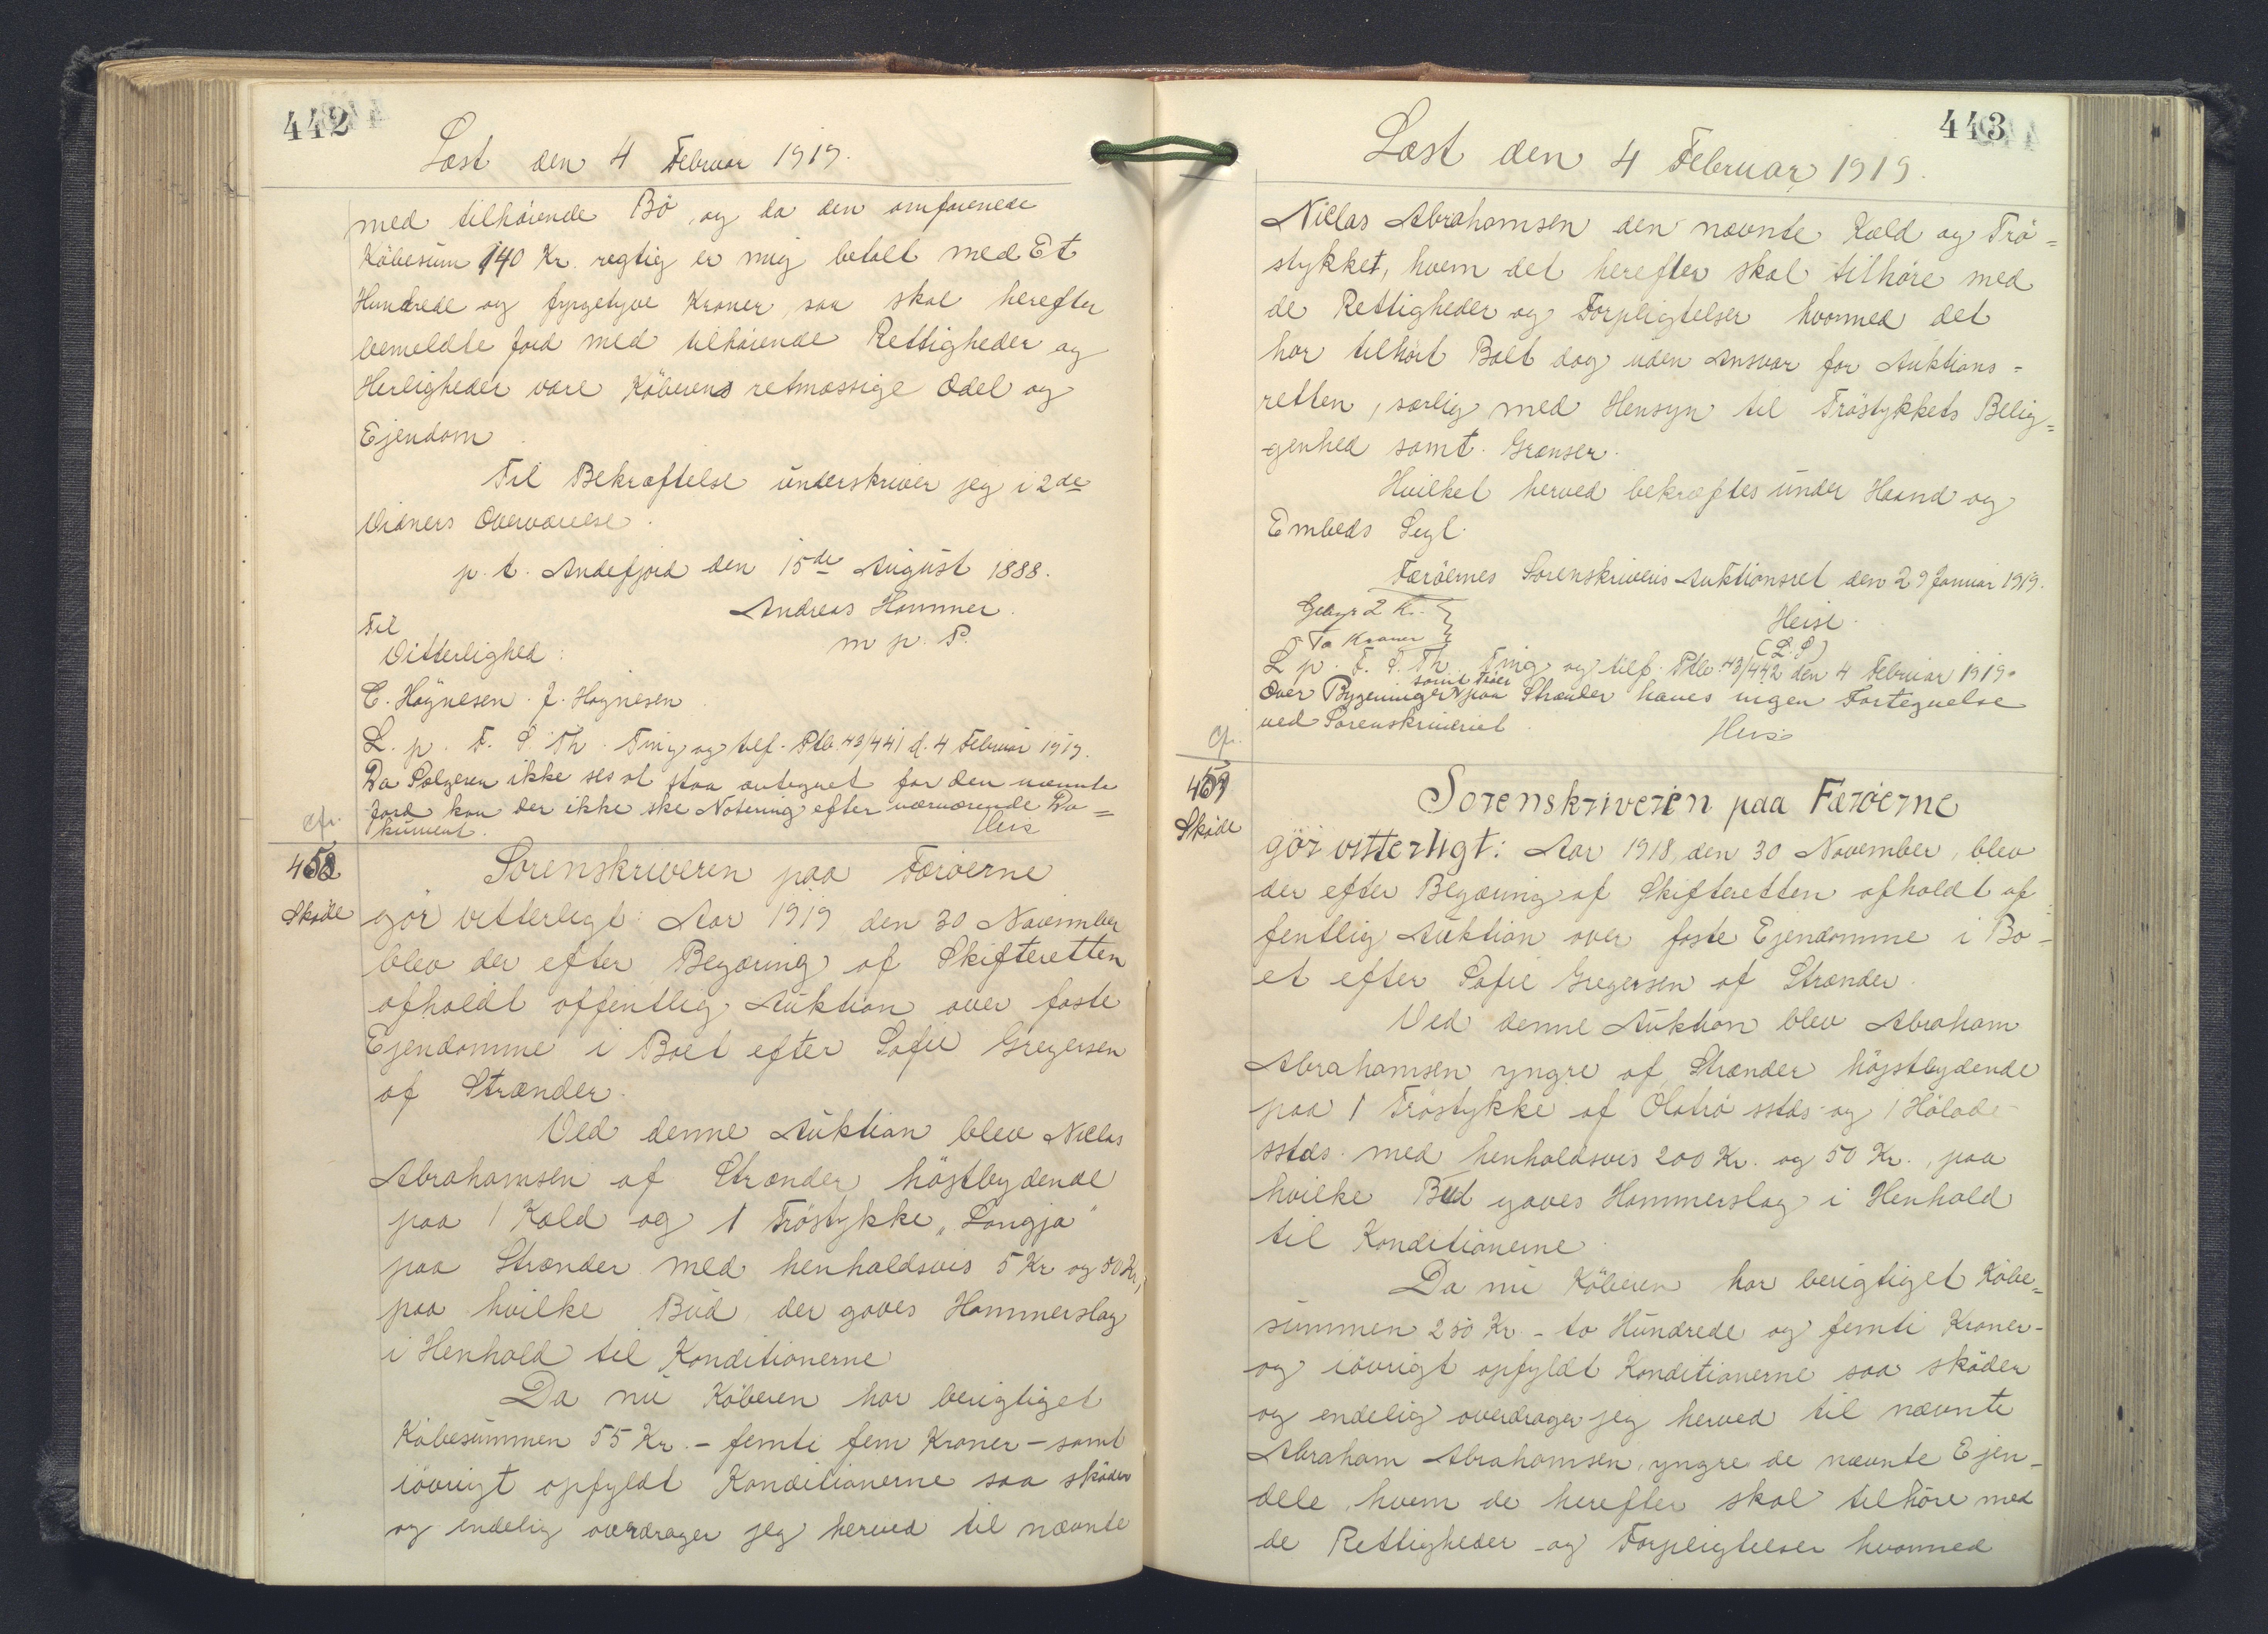 442
Læst den 4 Februar 1919.
med tilhörende Bö, og da den omforenede
Köbesum 140 Kr. rigtig er mig betalt med Et
Hundrede og fyrgetyve Kroner, saa skal herefter
bemeldte Jord med tilhörende Rettigheder og
Herligheder være Köberens retmæssige Odel og
Ejendom.
Til Bekræftelse underskriver jeg i 2de
Vidners Overværelse.
p. t. Andefjord den 15de August 1888.
Andreas Hammer.
m p. P.
Til
Vitterlighed:
C. Höynesen. J. Höynesen.
L. p. F. S. Th. Ting og tilf. Ptb. 43/441 d. 4 Februar 1919.
Da Sælgeren ikke ses at staa antegnet for den nævnte
Jord kan der ikke ske Notering efter nærværende Do=
kument.
Heise
cfr.
452
Sorenskriveren paa Færöerne
Sköde
gör vitterligt: Aar 1919 den 30 November
blev der efter Begæring af Skifteretten
afholdt offentlig Auktion over faste
Ejendomme i Boet efter Sofie Gregersen
af Strænder.
Ved denne Auktion blev Niclas
Abrahamsen af Strænder höjstbydende
paa 1 Kald og 1 Tröstykke "Langja"
paa Strænder med henholdsvis 5 Kr og 50 Kr,
paa hvilke Bud der gaves Hammerslag
i Henhold til Konditionerne
Da nu Köberen har berigtiget
Köbesummen 55 Kr. - femti fem Kroner - samt
iövrigt opfyldt Konditionerne saa sköder
og endelig overdrager jeg herved til nævnte
443
Læst den 4 Februar 1919.
Niclas Abrahamsen den nævnte Kald og Trö=
stykket, hvem det herefter skal tilhöre med
de Rettigheder og Forpligtelser hvormed det
har tilhört Boet dog uden Ansvar for Auktions=
retten, særlig med Hensyn til Tröstykkets Belig=
genhed samt Grænser.
Hvilket herved bekræftes under Haand og
Embeds Segl.
Færöernes Sorenskriveris Auktionsret den 29 Januar 1919.
Gebyr 2 Kr.
To Kroner
Heise.
(L. S)
L. p. F. S. Th. Ting og tilf. Ptb. 43/442 den 4 Februar 1919.
samt Tröer
Over Bygninger paa Strænder haves ingen Fortegnelse
ved Sorenskriveriet.
Heise
cfr.
453
Sköde
Sorenskriveren paa Færöerne
gör vitterligt: Aar 1918, den 30 November, blev
der efter Begæring af Skifteretten afholdt of=
fentlig Auktion over faste Ejendomme i Bo-
et efter Sofie Gregersen af Strænder.
Ved denne Auktion blev Abraham
Abrahamsen yngre af Strænder höjstbydende
paa 1 Tröstykke af Olatrö sstds. og 1 Hölade
sstds. med henholdsvis 200 Kr. og 50 Kr., paa
hvilke Bud gaves Hammerslag i Henhold
til Konditionerne.
Da nu Köberen har berigtiget Köbe=
summen 250 Kr. - to Hundrede og femti Kroner -
og iövrigt opfyldt Konditionerne saa sköder
og endelig overdrager jeg herved til nævnte
Abraham Abrahamsen, yngre de nævnte Ejen-
dele, hvem de herefter skal tilhöre med
de Rettigheder og Forpligtelser hvormed